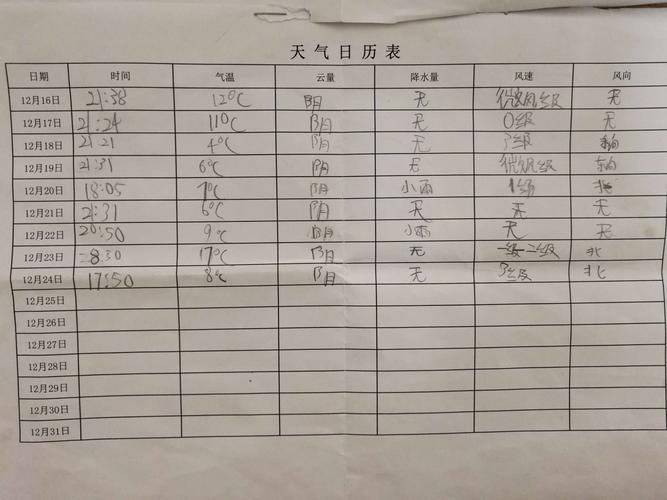 天气日历表
日期 时间 气温 云量 降水量 风速 风向
12月16日 21:38 12°C 阴 无 微风级 无
12月17日 21:24 11°C 阴 无 0级 无
12月18日 21:21 4°C 阴 无 级
12月19日 21:31 6°C 阴 无 微风级
12月20日 18:05 7°C 阴 小雨 1级 北
12月21日 21:31 6°C 阴 无 无 无
12月22日 20:50 9°C 阴 小雨 无 无
12月23日 8:30 17°C 阴 无 二级 北
12月24日 17:50 8°C 阴 无 级 北
12月25日
12月26日
12月27日
12月28日
12月29日
12月30日
12月31日